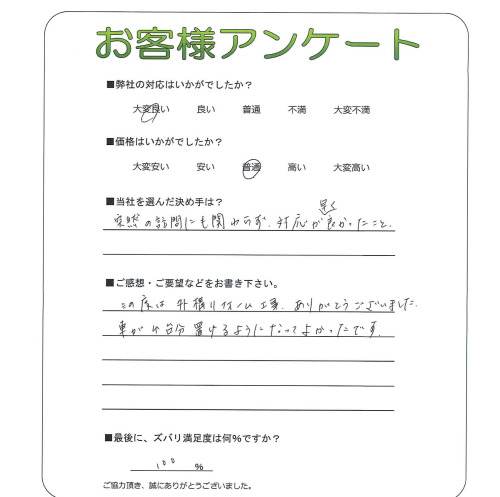 お客様アンケート
■弊社の対応はいかがでしたか？
大変良い 良い 普通 不満 大変不満
■価格はいかがでしたか？
大変安い 安い 普通 高い 大変高い
■当社を選んだ決め手は？
早く
突然の訪問にも関わらず、対応が良かったこと、
■ご感想・ご要望などをお書き下さい。
この度は外構リフォーム工事、ありがとうございました。
車が4台分置けるようになってよかったです。
■最後に、ズバリ満足度は何%ですか？
100 %
ご協力頂き、誠にありがとうございました。